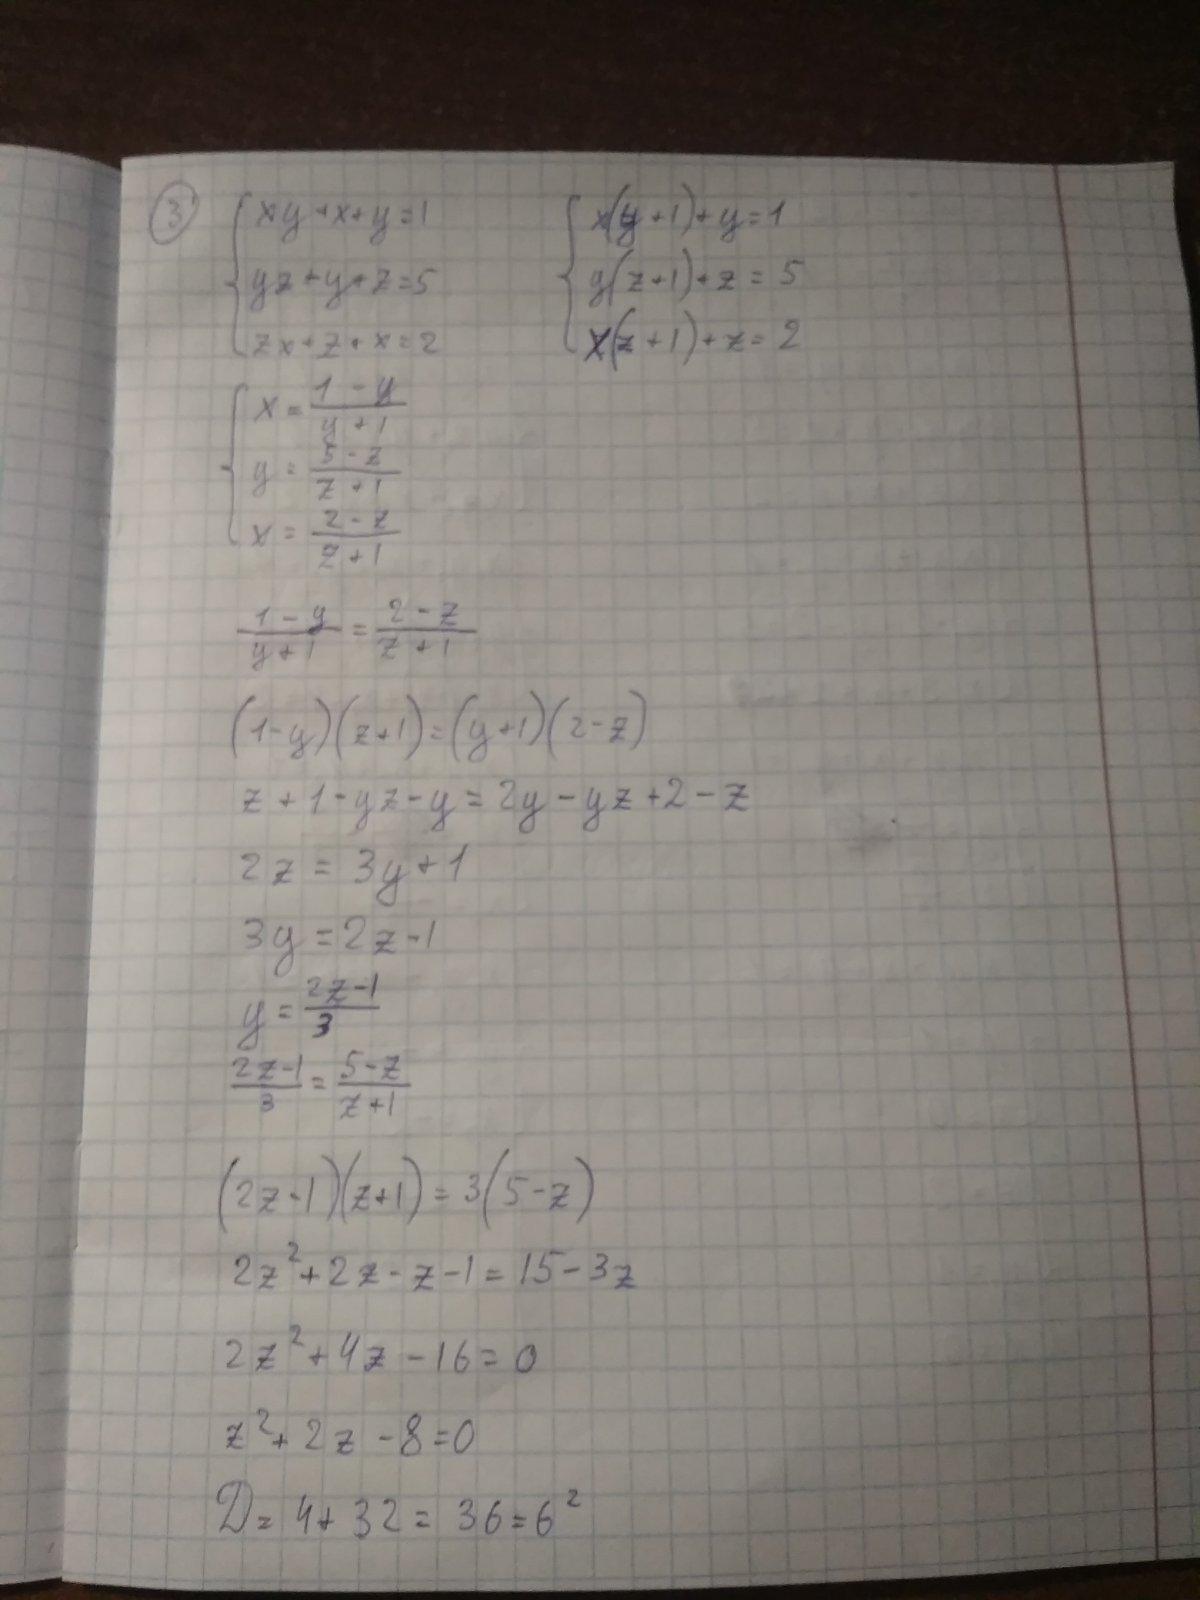 3
xy+x+y=1
yz+y+z=5
zx+z+x=2
x(y+1)+y=1
y(z+1)+z=5
x(z+1)+z=2
x=\frac{1-y}{y+1}
y=\frac{5-z}{z+1}
x=\frac{2-z}{z+1}
\frac{1-y}{y+1}=\frac{2-z}{z+1}
(1-y)(z+1)=(y+1)(2-z)
z+1-yz-y=2y-yz+2-z
2z=3y+1
3y=2z-1
y=\frac{2z-1}{3}
\frac{2z-1}{3}=\frac{5-z}{z+1}
(2z-1)(z+1)=3(5-z)
2z²+2z-z-1=15-3z
2z²+4z-16=0
z²+2z-8=0
D=4+32=36=6²